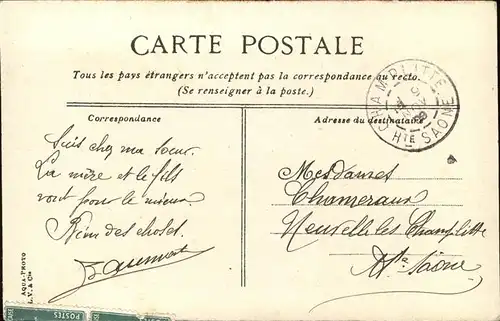 CARTE POSTALE
Tous les pays étrangers n'acceptent pas la correspondance au recto.
(Se renseigner à la poste.)
Correspondance
Adresse du destinataire
CHAMPLITTE
HTE SAÔNE
Suis chez ma sœur.
La mère et le fils
vont pour le mieux
Rien des choses.
Mesdames
Chameraux
Neuvelle les Champlitte
Hte Saône
AQUA-PHOTO
L.V. & Cie
POSTES